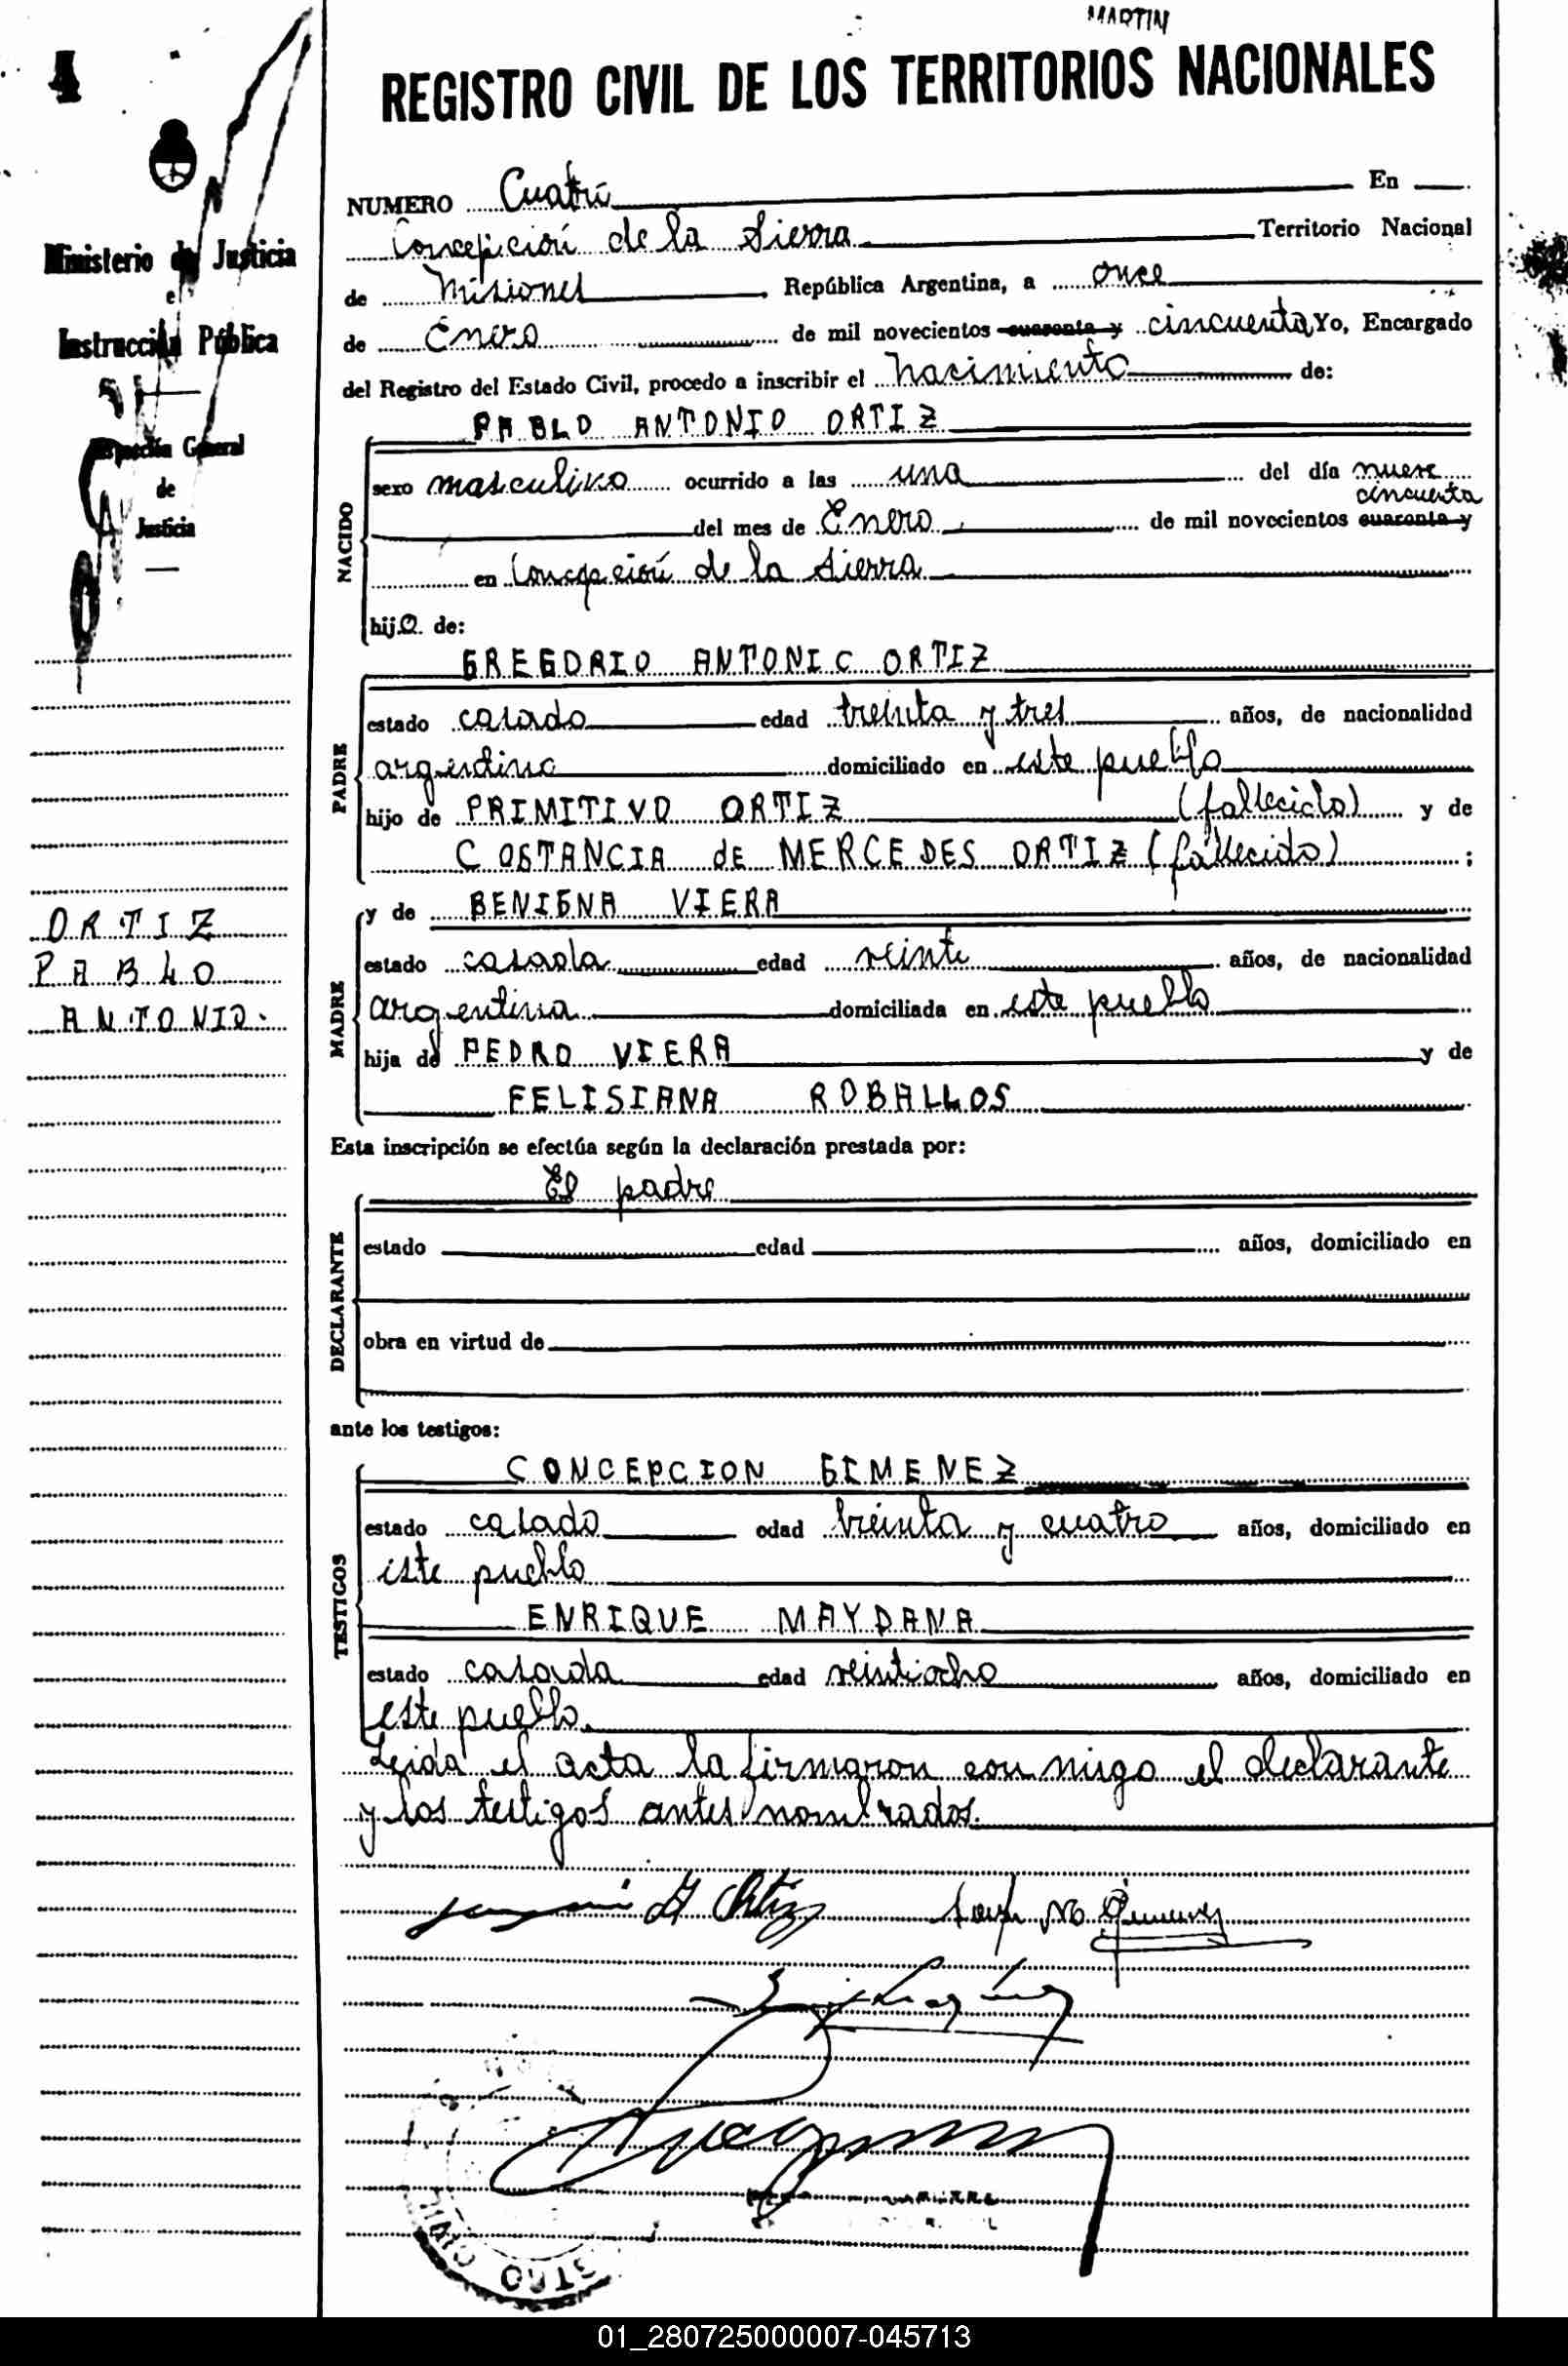 MARTIN
4
REGISTRO CIVIL DE LOS TERRITORIOS NACIONALES
Ministerio de Justicia
e
Instrucción Pública
Inspección General
de
Justicia
ORTIZ
PABLO
ANTONIO.
NUMERO Cuatro En
Concepción de la Sierra Territorio Nacional
de Misiones República Argentina, a once
de Enero de mil novecientos cuarenta y cincuenta Yo, Encargado
del Registro del Estado Civil, procedo a inscribir el nacimiento de:
PABLO ANTONIO ORTIZ
NACIDO
sexo masculino ocurrido a las una del día nueve
cincuenta
del mes de Enero de mil novecientos cuarenta y
en Concepción de la Sierra
hijo de:
GREGORIO ANTONIO ORTIZ
PADRE
estado casado edad treinta y tres años, de nacionalidad
argentino domiciliado en este pueblo
hijo de PRIMITIVO ORTIZ (fallecido) y de
COSTANCIA de MERCEDES ORTIZ (fallecido) ;
y de BENIGNA VIERA
MADRE
estado casada edad veinte años, de nacionalidad
argentina domiciliada en este pueblo
hija de PEDRO VIERA y de
FELISIANA ROBALLOS
Esta inscripción se efectúa según la declaración prestada por:
El padre
DECLARANTE
estado edad años, domiciliado en
obra en virtud de
ante los testigos:
CONCEPCION GIMENEZ
TESTIGOS
estado casado edad treinta y cuatro años, domiciliado en
este pueblo
ENRIQUE MAYDANA
estado casada edad veintiocho años, domiciliado en
este pueblo.
Leida el acta la firmaron con migo el declarante
y los testigos antes nombrados.
A Ortiz
Gimenez
STRO CIVIL
01_280725000007-045713